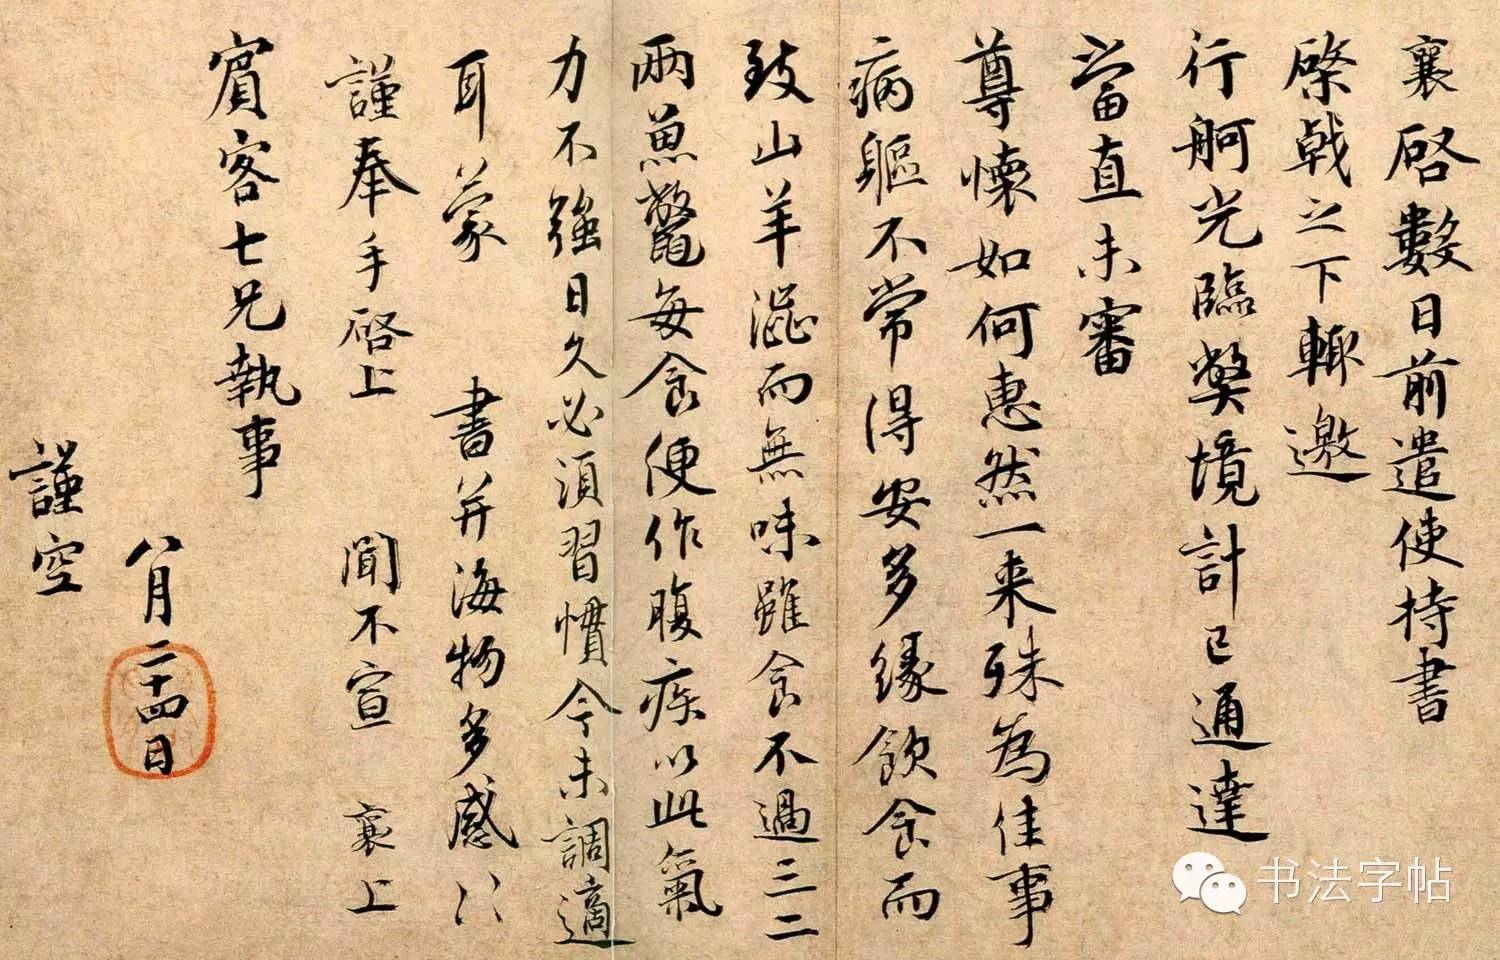 襄啓數日前遣使持書
棨戟之下輙邀
行舸光臨獘境計已通達
當直未審
尊懷如何惠然一来殊為佳事
病軀不常得安多緣飲食而
致山羊澁而無味雖食不過三二
兩魚鱉每食便作腹疾以此氣
力不強日久必須習慣今未調適
耳蒙 書并海物多感〻
謹奉手啓上 聞不宣 襄上
賓客七兄執事
八月二十四日
謹空
书法字帖